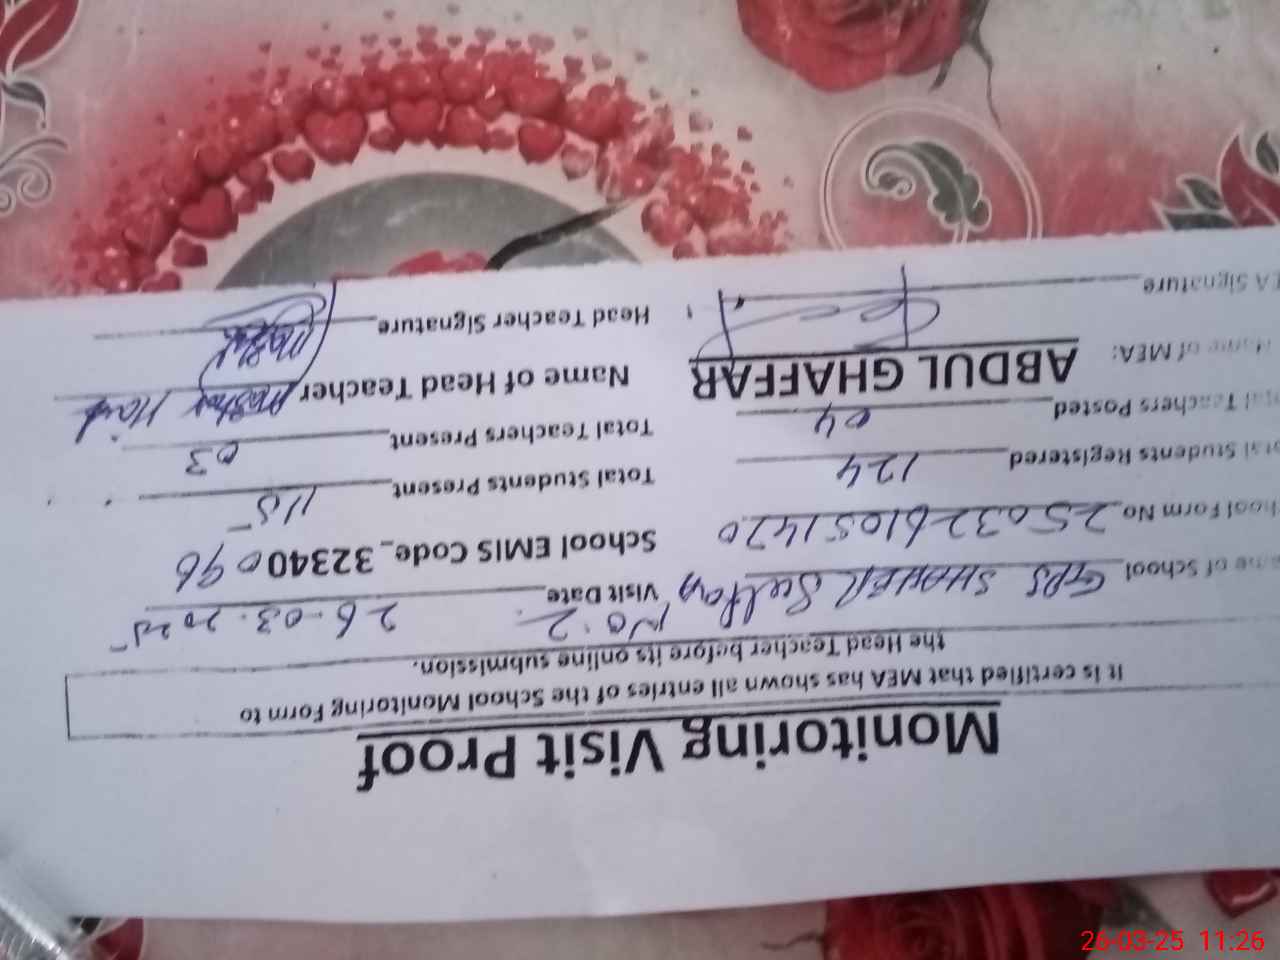 Monitoring Visit Proof
It is certified that MEA has shown all entries of the School Monitoring Form to
the Head Teacher before its online submission.
me of School GPS SHAHER Sultan No. 2 Visit Date 26-03-2025
hool Form No 2503261051420 School EMIS Code_ 32340096
tal Students Registered 124 Total Students Present 115
tal Teachers Posted 04 Total Teachers Present 03
Name of MEA: ABDUL GHAFFAR Name of Head Teacher
EA Signature Head Teacher Signature
26-03-25 11:26